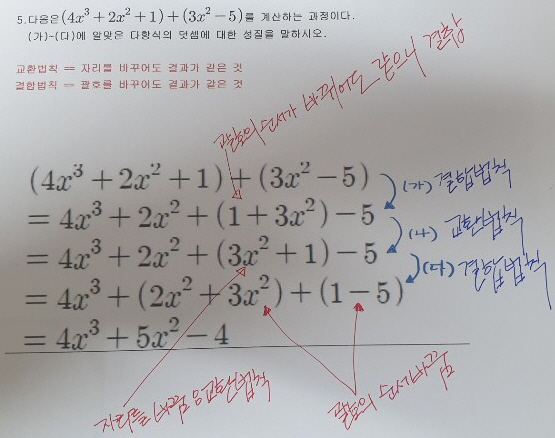 5.다음은(4x³+2x²+1)+(3x²-5)를 계산하는 과정이다.
(가)~(다)에 알맞은 다항식의 덧셈에 대한 성질을 말하시오.
교환법칙 = 자리를 바꾸어도 결과가 같은 것
결합법칙 = 괄호를 바꾸어도 결과가 같은 것
괄호의 순서가 바뀌어도 같으니 결합
(4x³ + 2x² + 1) + (3x² − 5)
(가) 결합법칙
= 4x³ + 2x² + (1 + 3x²) − 5
(나) 교환법칙
= 4x³ + 2x² + (3x² + 1) − 5
(다) 결합법칙
= 4x³ + (2x² + 3x²) + (1 − 5)
= 4x³ + 5x² − 4
자리를 바꿈 교환법칙
괄호의 순서바꿈